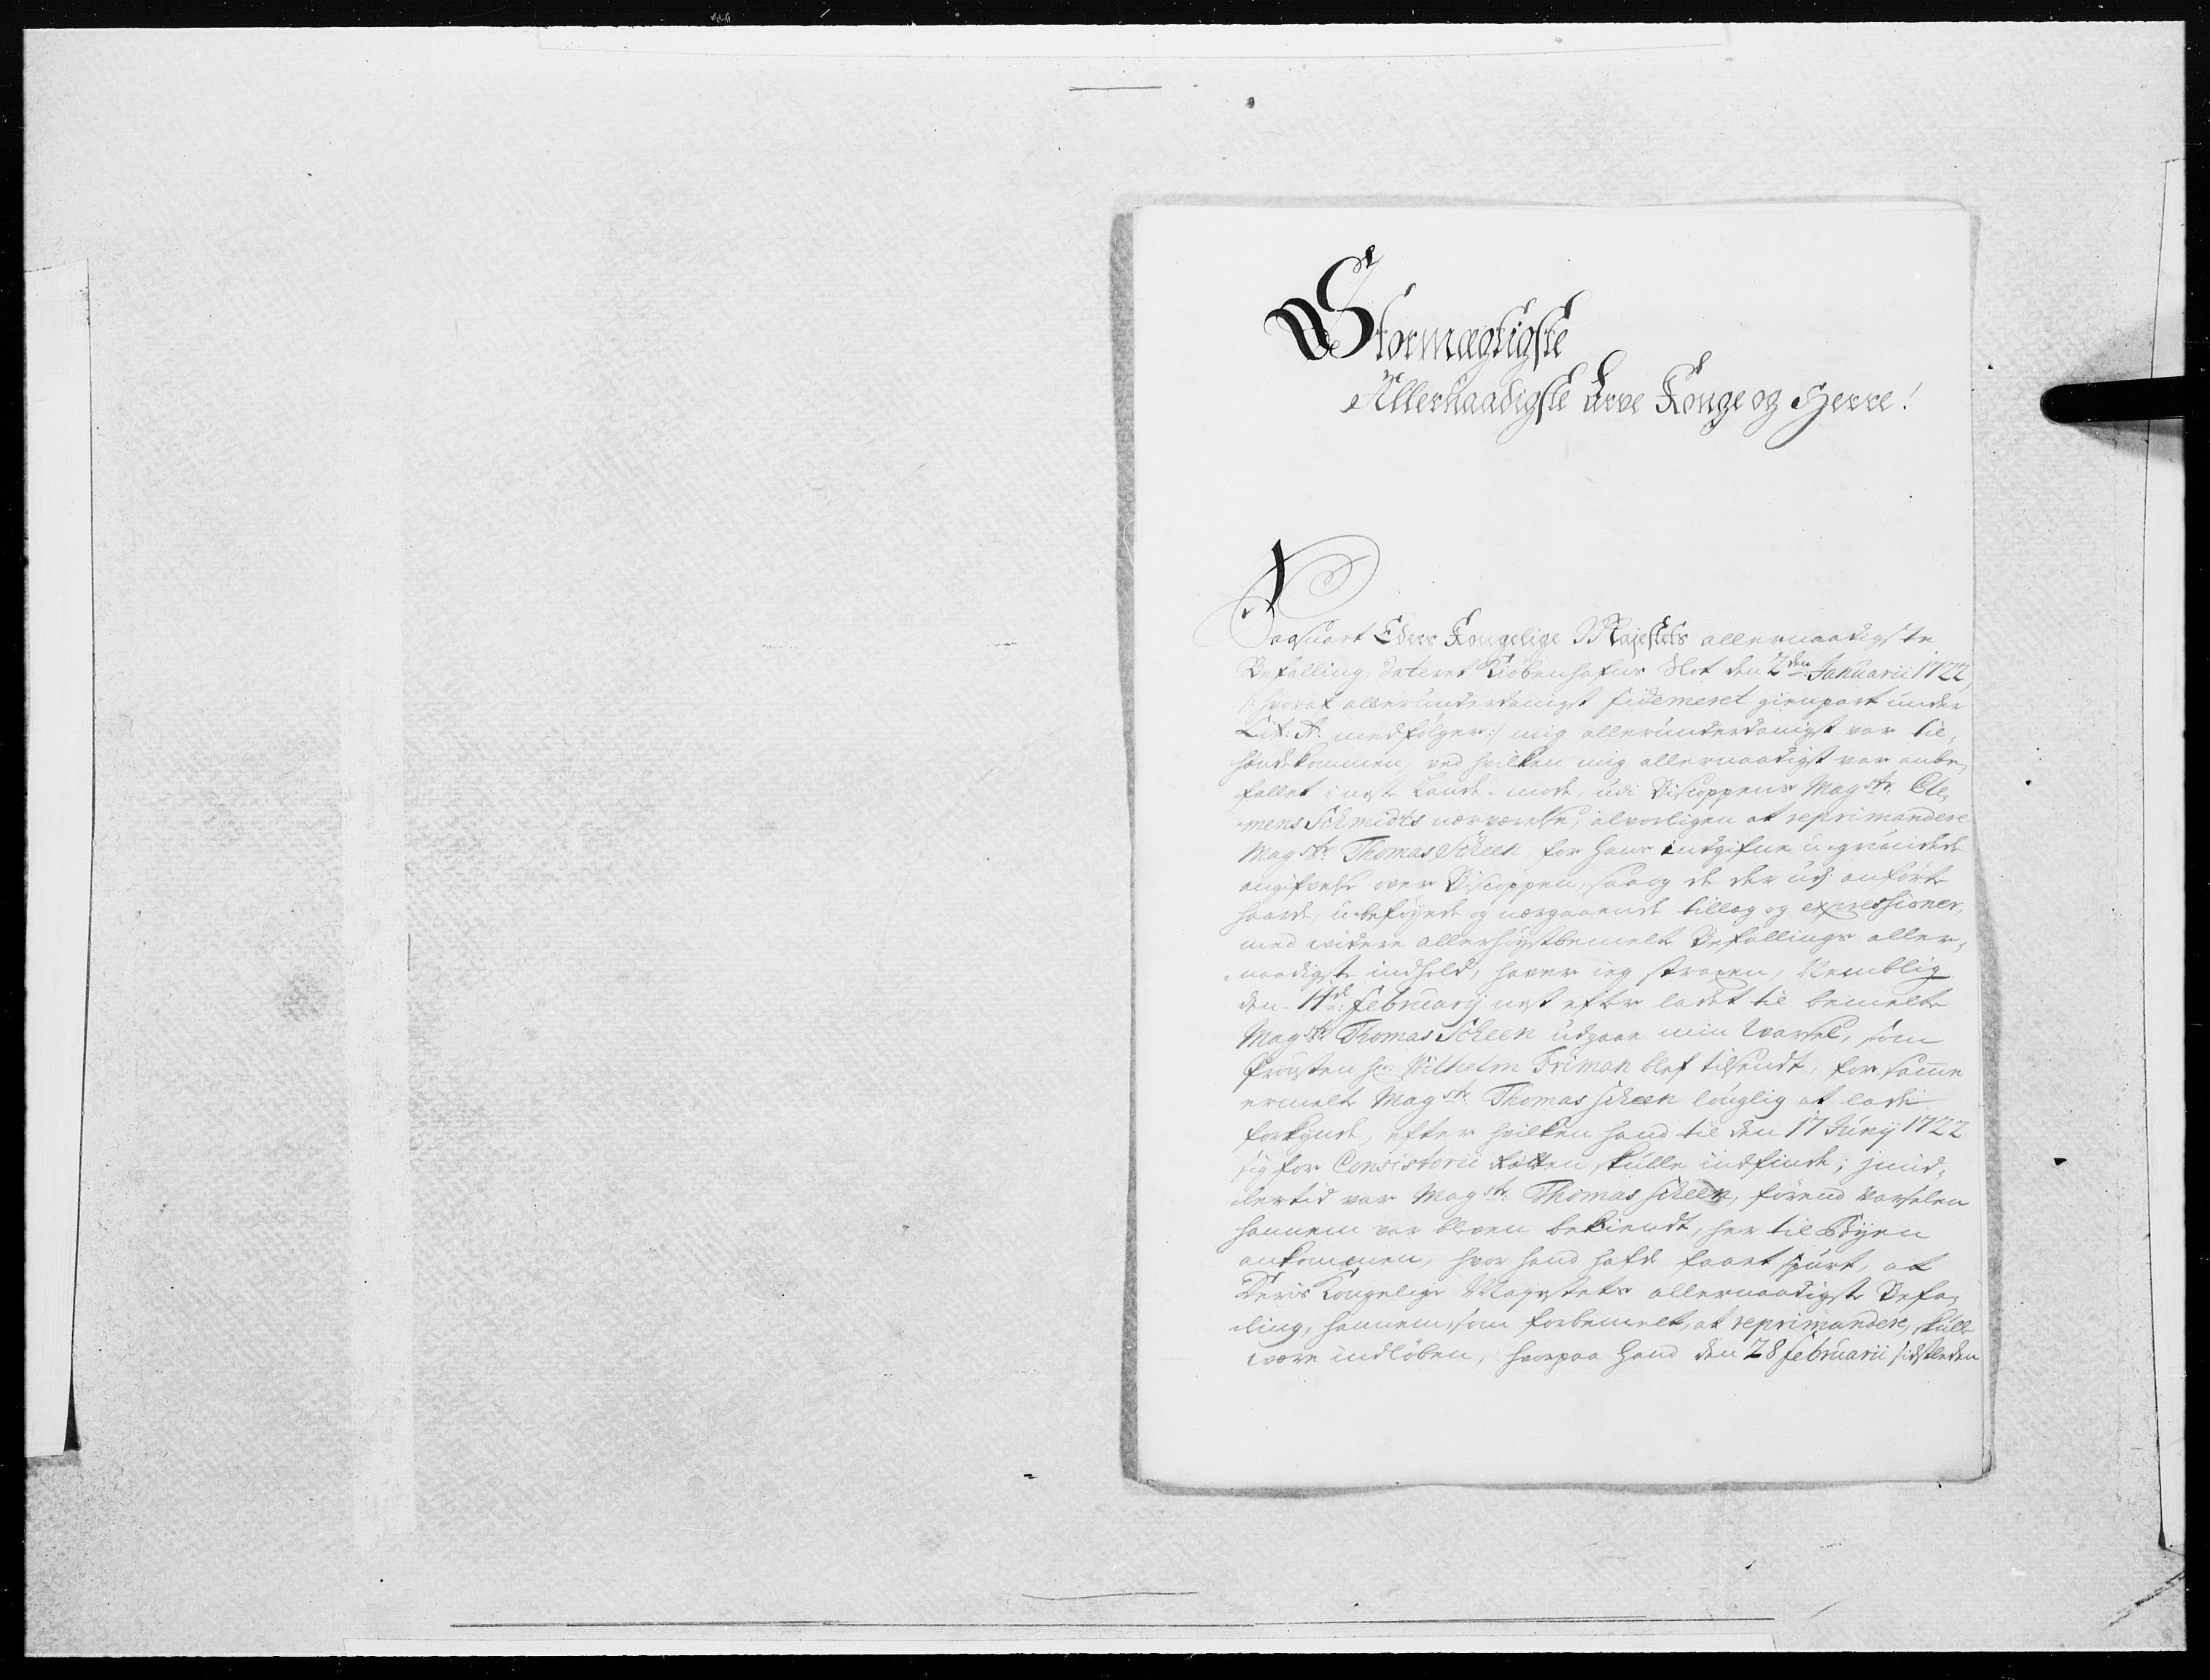 Stormægtigste
Allernaadigste Arve Konge og Herre!
Saasnart Eders Kongelige Majestets allernaadigste
Befalling, dateret Kiøbenhafns Slot den 2den Januarii 1722,
/: hvoraf allerunderdanigst fidemeret gienpart under
Lit: A: medfølger :/ mig allerunderdanigst var til-
hændekommen, ved hvilken mig allernaadigst var anbe-
fallet i nest Lande-mode, udi Biscoppens Magstr: Cle-
mens Schmidts nærværelse, alvorligen at reprimandere
Magstr: Thomas Scheen, for hans indgifne u-grundede
angifvelse over Biscoppen, saa og de der udj anførte
haarde, u-beføyede og nærgaaende tillæg og expressioner,
med widere allerhøystbemelte Befallings aller-
naadigste indhold, haver ieg straxen, Nemblig
den 14de: February nest efter ladet til bemelte
Magstr: Thomas Scheen udgaae min Varsel, som
Provsten Hr: Wilhelm Friman blef tilsendt, for samme
ermelte Magstr: Thomas Scheen louglig at lade
forkynde, efter hvilken hand til den 17 Junij 1722
sig for Consistorii Rætten skulle indfinde; jmid-
lertid var Magstr: Thomas Scheen, førend Varselen
hannem var bleven bekiendt, her til Byen
ankommen, hvor hand hafde faaet spurt, at
Deris Kongelige Majestets allernaadigste Befa-
ling, hannem, som forbemelt, at reprimandere, skulle
være indløben, hvorpaa hand den 28 februarii sidstleden